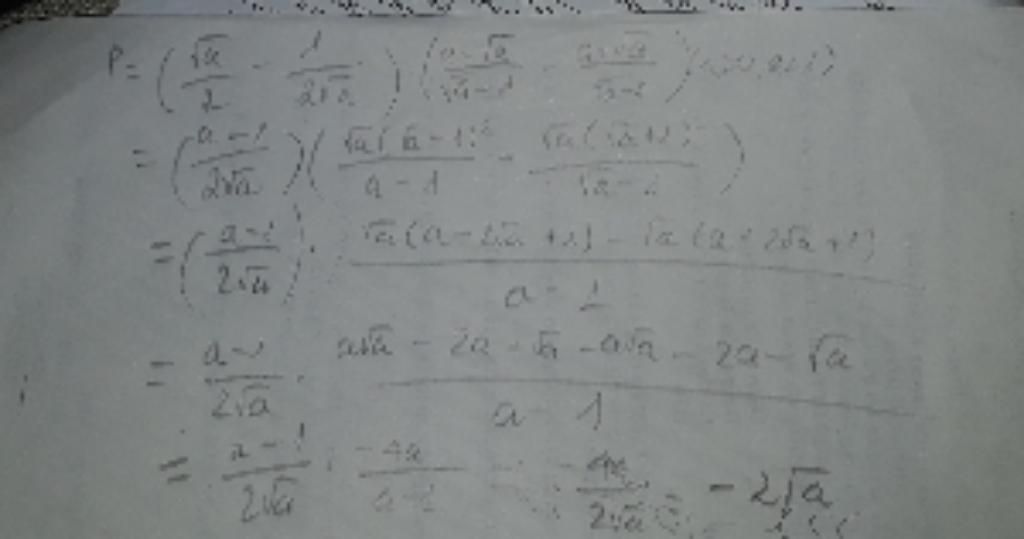 P = (√a/2 - 1/2√a) (a-√a/√a+1 - a+√a/√a-1)
= (a-1/2√a) (√a(√a-1)²/a-1 - √a(√a+1)²/√a-1)
= (a-1/2√a) . √a(a-2√a+1) - √a(a+2√a+1)/a-1
= a-1/2√a . a√a - 2a + √a - a√a - 2a - √a/a-1
= a-1/2√a . -4a/a-1 = -4a/2√a = -2√a